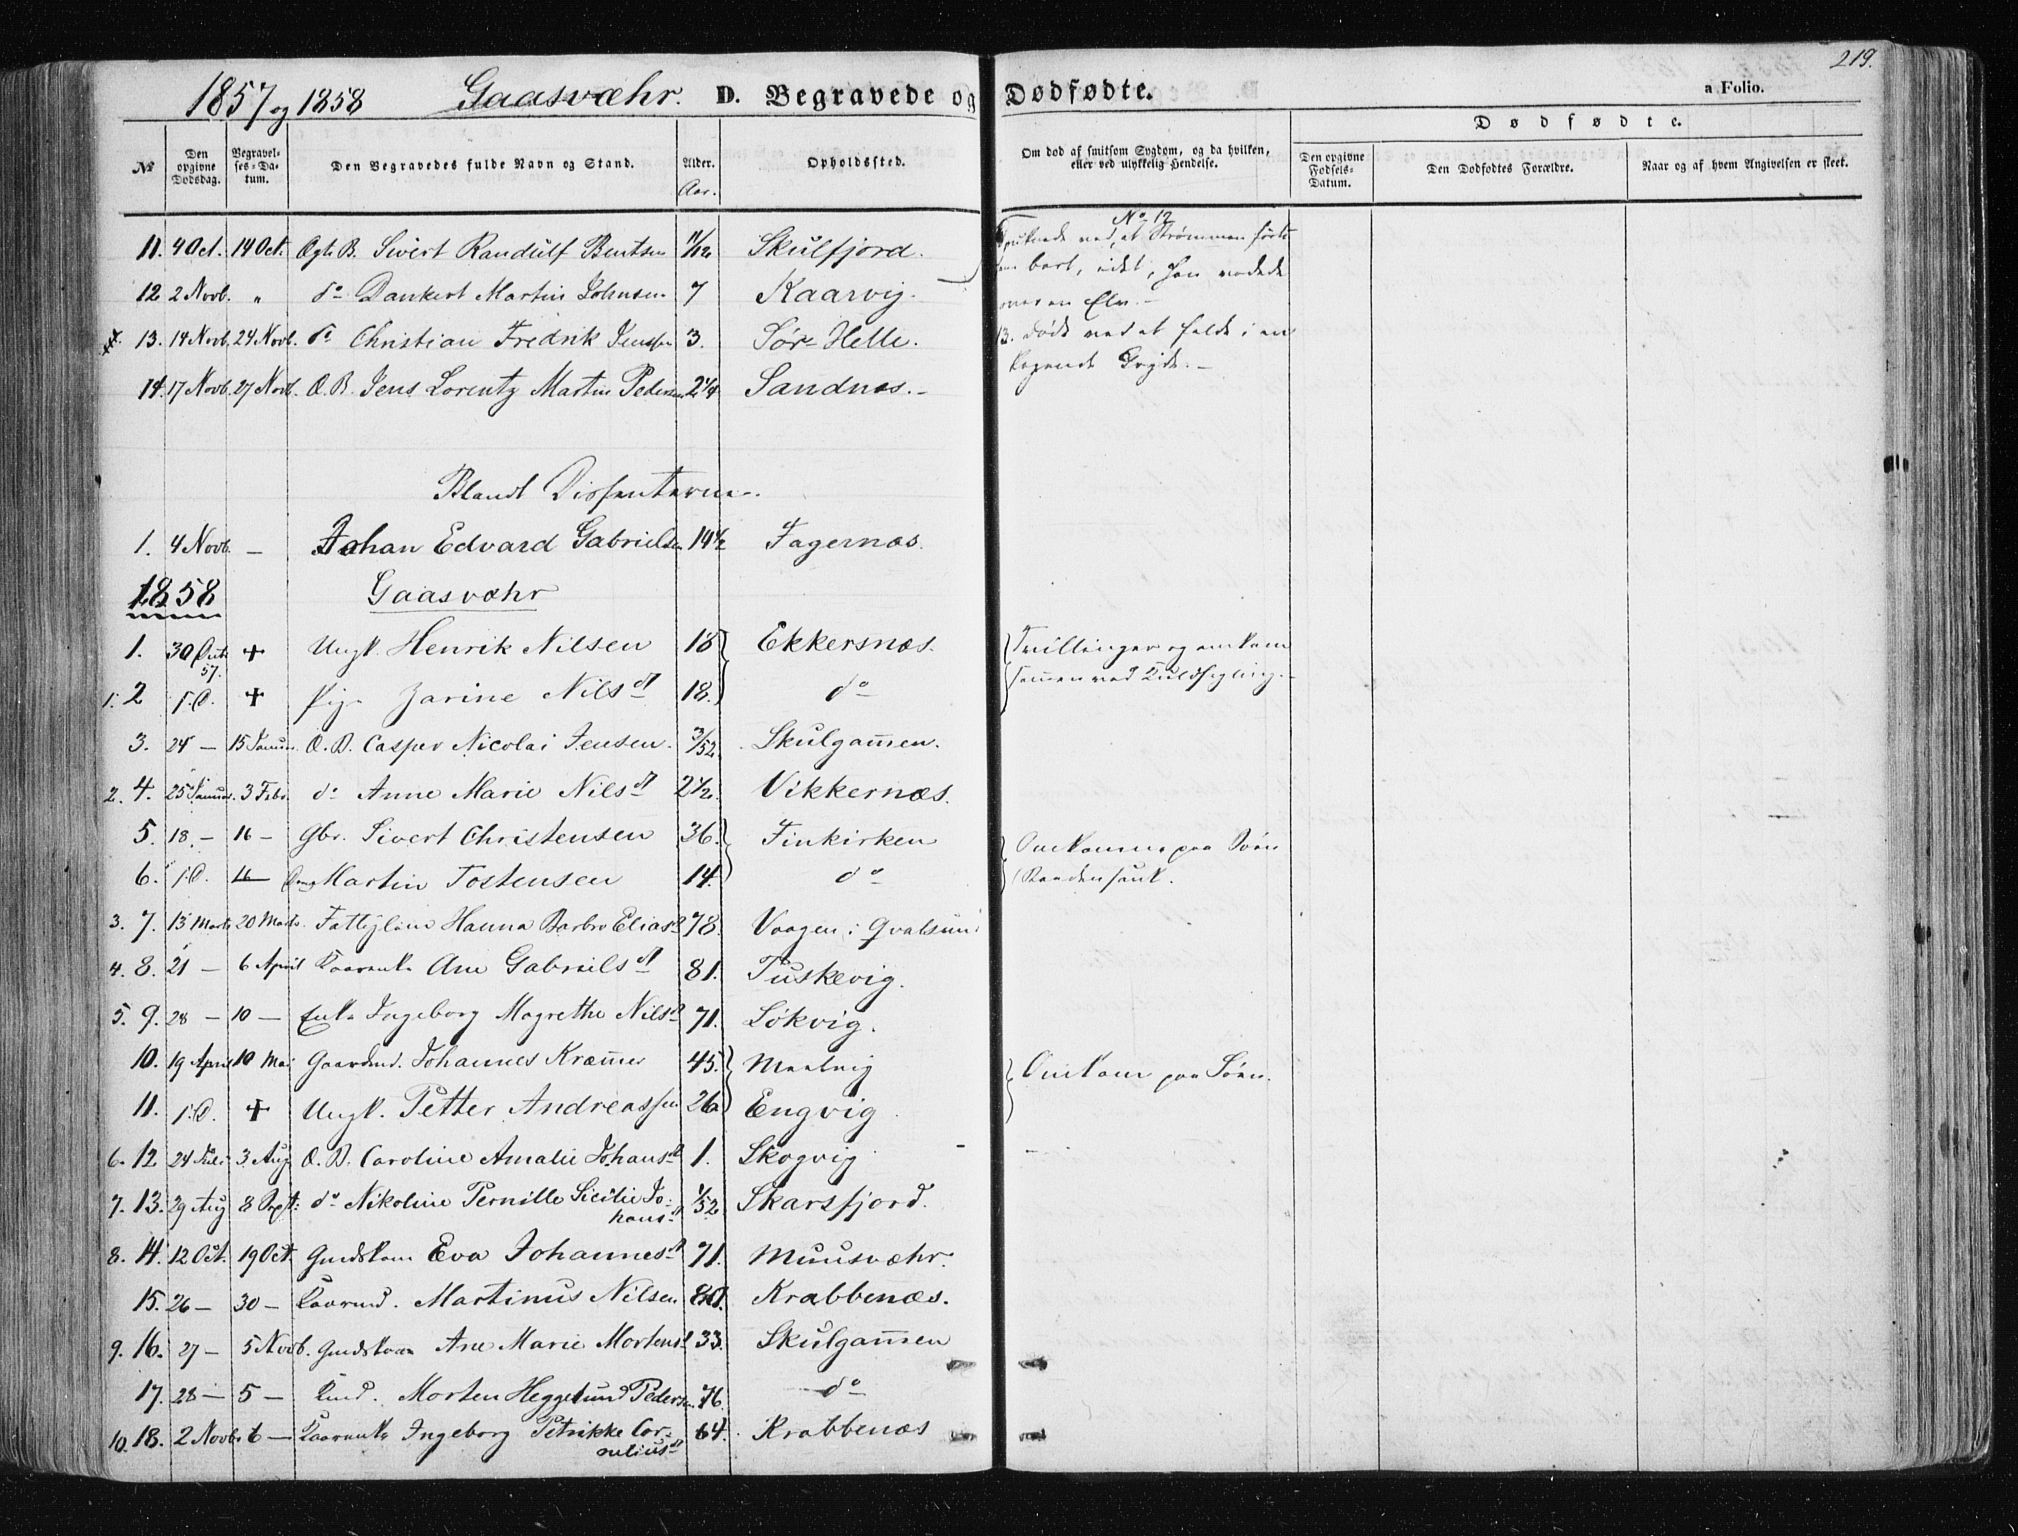 219.
1857 og 1858 Gaasvæhr. D. Begravede og Dødfødte. a Folio.
Dødfødte.
No Den opgivne Dødsdag. Begravelses-Datum. Den Begravedes fulde Navn og Stand. Alder. Aar. Opholdssted. Om død af smitsom Sygdom, og da hvilken, eller ved ulykkelig Hendelse. Den opgivne Fødsels-Datum. Den Dødfødtes Forældre. Naar og af hvem Angivelsen er skeet.
11. 4 Oct. 14 Oct. Ægt. B. Sivert Randulf Bentsen 11/12 Skulfjord. No 12 ved, at Strømmen førte
12 2 Novb. " do Dankert Martin Johnsen 7 Kaarvig. bort, idet, han vadede
over en Elv. -
13. 14 Novb. 24 Novb. do Christian Fredrik Jenssen 3. Sør-Helle. 13. døde ved at falde i en
kogende Gryde. -
14. 17 Novb. 27 Novb. Æ. B. Jens Lorentz Martin Pedersen 2 1/4 Sandnæs. -
Blandt Dissenterne.
1. 4 Novb. - Johan Edvard Gabrielsen 14 1/2 Fagernæs.
1858 Gaasvæhr
1. 30 Oct. 57. + Ungk. Henrik Nilsen 18 Ekkersnæs. Tvillinger og omkom
1. 2 i.D. + Pige Zarine Nilsdt 18. do sammen ved Kuldseyling. -
3. 24 - 15 Januar. Æ. B. Casper Nicolai Jensen. 3/52 Skulgam̄en.
2. 4. 25 Januar. 3 Febr. do Anne Marie Nilsdt 2 1/2 Vikkernæs.
5. 18 - 16 - Gbr. Sivert Christensen 36. Finkirken Omkomne paa Søen
6. i.D. 16 - Martin Tostensen 14. do
3. 7. 13 Marts 20 Marts. Fattiglem Hanna Barbro Eliasdt 78. Vaagen i Qvalsund
4. 8. 21 - 6 April Kaarenke Ane Gabrielsdt 81. Tuskevig.
5. 9. 28 - 10 - Enke Ingeborg Magrethe Nilsdt 71. Løkvig.
10. 19 April 10 Mai Gaardmd. Johannes Kræm̄er 45. Maalvig Omkom paa Søen.
11. i.D. + Ungk. Petter Andreassen 26 Engvig.
6. 12 24 Juli 3 Aug Æ. B. Caroline Amalie Johansdt 1. Skogvig
7. 13. 29 Aug 8 Sept: do Nikoline Pernille Sicilie Jo-
hansdt 1/52 Skarsfjord.
8. 14. 12 Oct. 19 Oct. Gmdskone Eva Johannesdt 71. Muusvæhr.
15. 26 - 30 - Kaarmd. Martinus Nilsen Krabbenæs.
9. 16. 27 - 5 Novb. Gmdskone Ane Marie Mortensdt 33. Skulgam̄en
17. 28 - 5 - Kmd. Morten Heggelund Pedersen 76. do
10. 18. 2 Novb. 6 - Kaarenke Ingeborg Petrikke Cor-
neliusdt 64. Krabbenæs